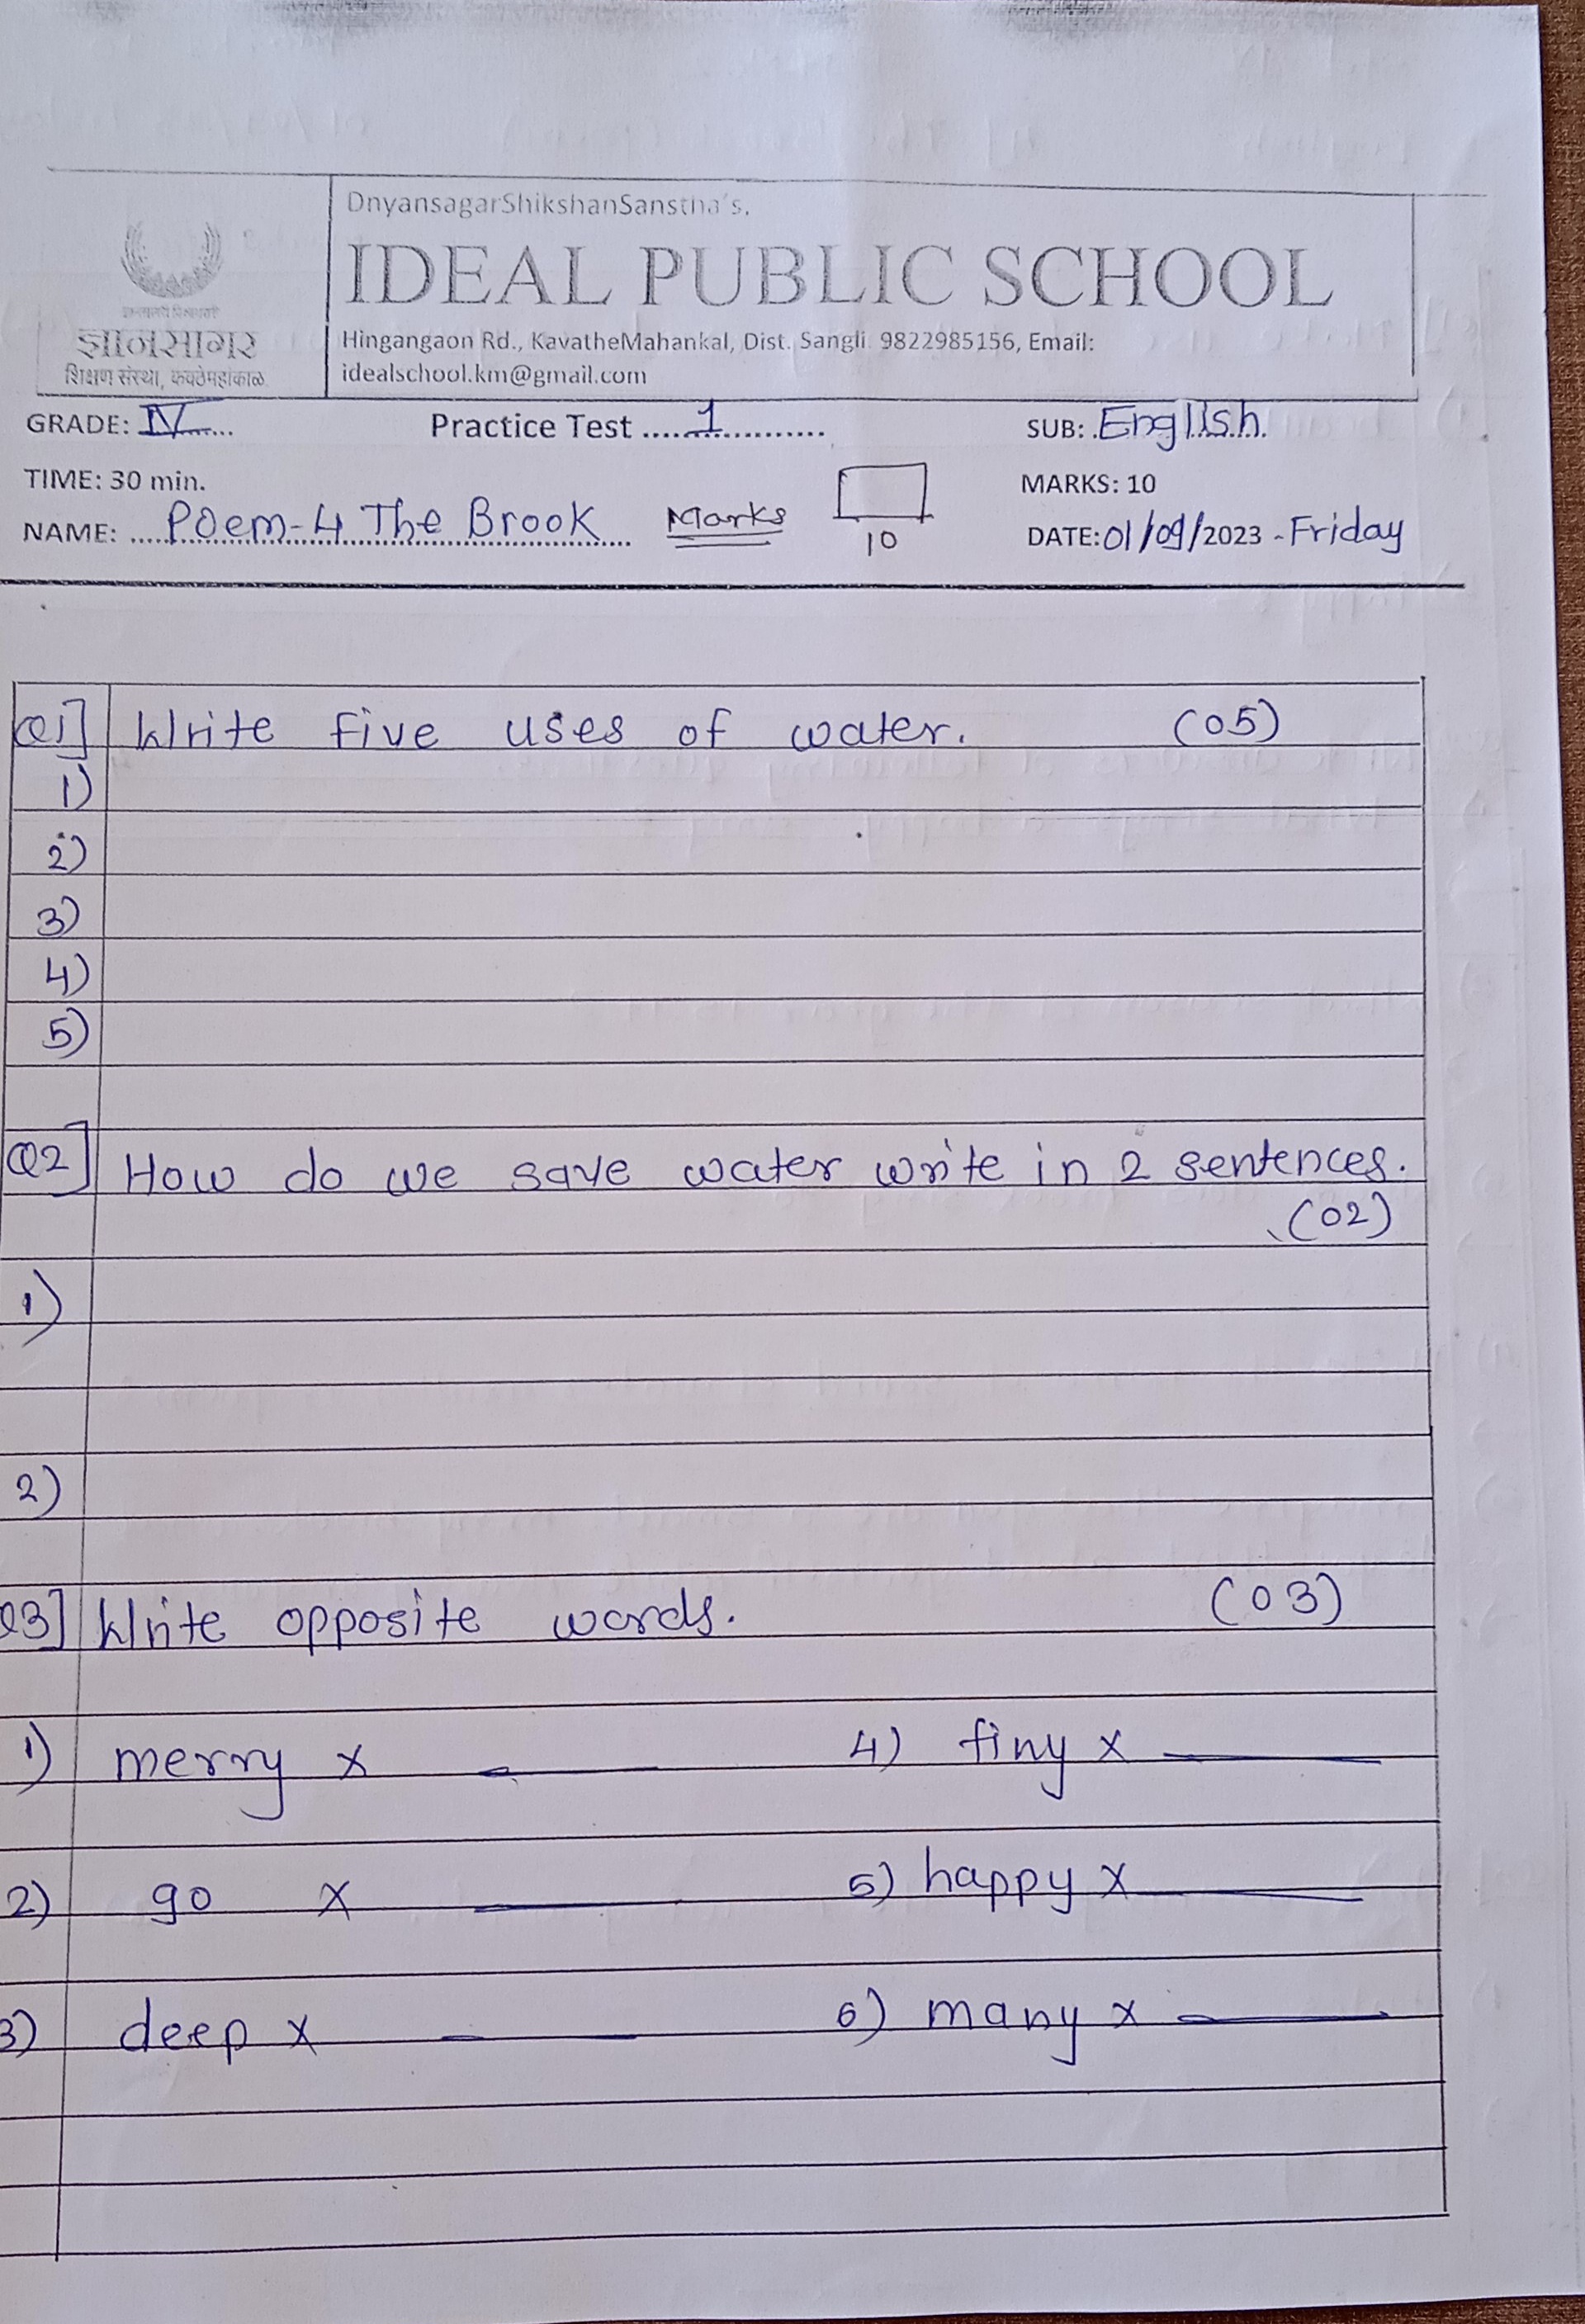 DnyansagarShikshanSanstha's,
IDEAL PUBLIC SCHOOL
Hingangaon Rd., KavatheMahankal, Dist. Sangli. 9822985156, Email:
idealschool.km@gmail.com
ज्ञानसागर
शिक्षण संस्था, कवठेमहांकाळ
GRADE: IV Practice Test 1 SUB: English
TIME: 30 min. MARKS: 10
NAME: Poem-4 The Brook Marks 10 DATE: 01/09/2023 - Friday
Q1] Write five uses of water. (05)
1)
2)
3)
4)
5)
Q2] How do we save water write in 2 sentences.
(02)
1)
2)
Q3] Write opposite words. (03)
1) merry x 4) tiny x
2) go x 5) happy x
3) deep x 6) many x